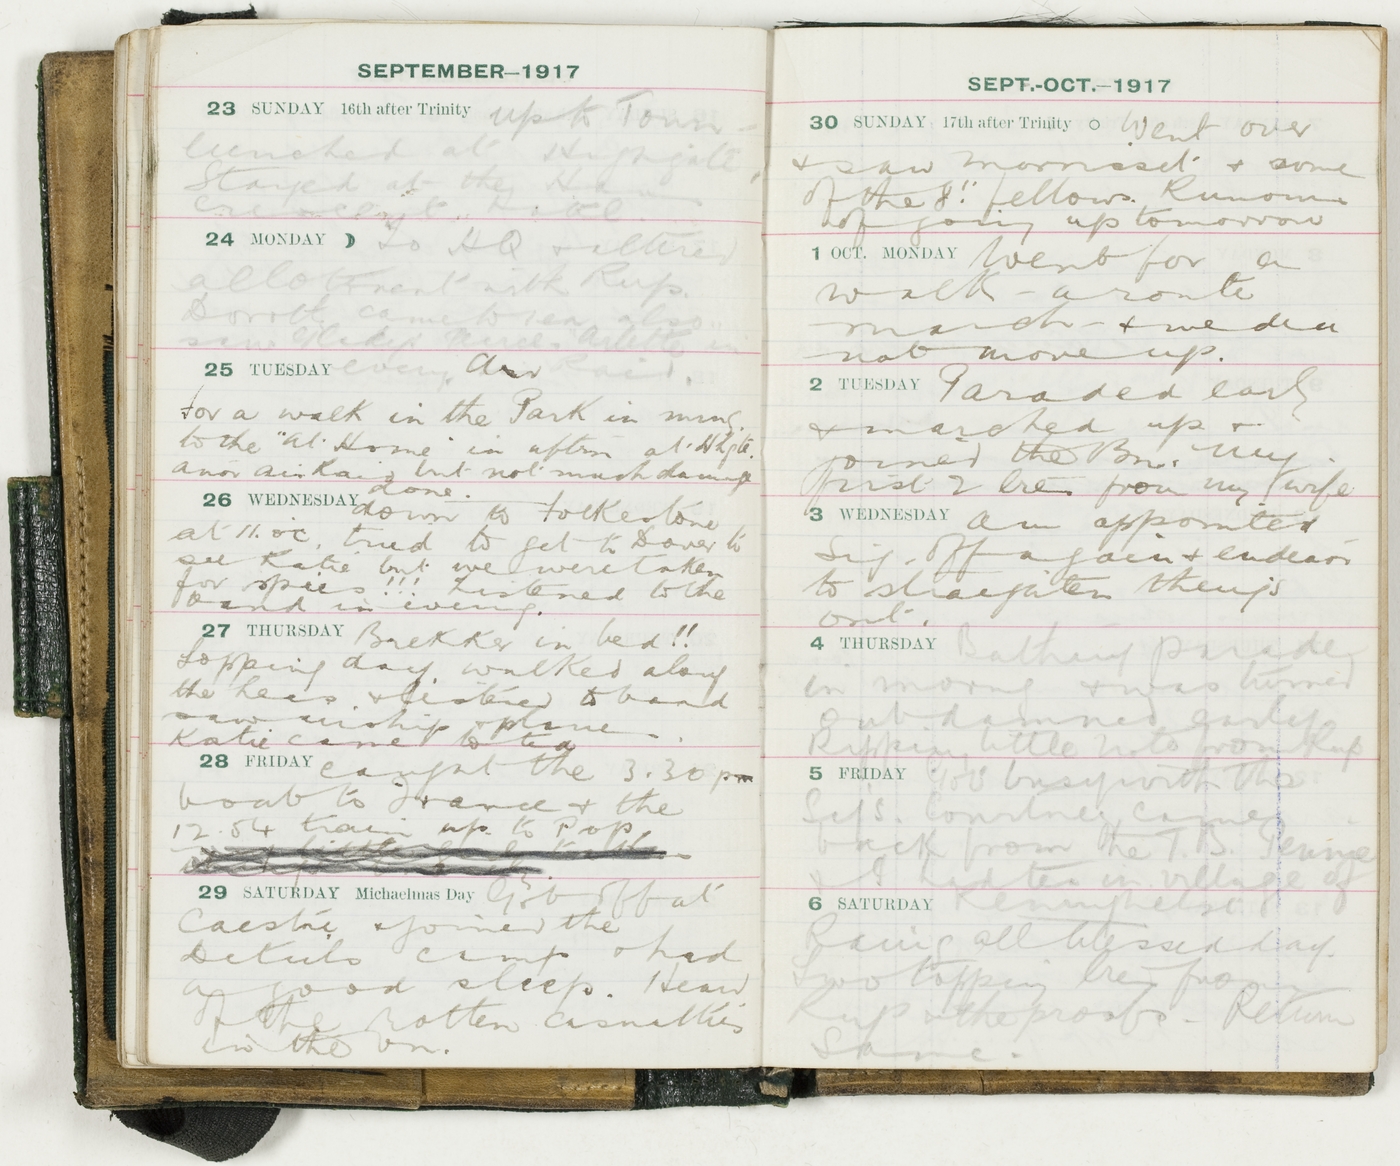 SEPTEMBER—1917
23 SUNDAY 16th after Trinity up to Town -
lunched at Highgate,
Stayed at the
Hotel.
24 MONDAY To HQ & altered
allotment with Rup.
came to sea also
saw Gladys
evening Air Raid.
25 TUESDAY
For a walk in the Park in mrng.
to the "At Home" in aftrn at H'gte.
anor air Raid but not much damage
done.
26 WEDNESDAY down to Folkestone
at 11. oc, tried to get to Dover to
see Katie but we were taken
for spies!!! Listened to the
band in evening.
27 THURSDAY Brekker in bed!!
Topping day, walked along
the Leas & listened to band
saw airship & plane.
Katie came to tea
28 FRIDAY caught the 3.30 pm
boat to France & the
12.54 train up to Pop.
29 SATURDAY Michaelmas Day Got off at
Caestre & joined the
Details camp & had
a good sleep. Heard
of the rotten casualties
in the bn.
SEPT.-OCT.—1917
30 SUNDAY 17th after Trinity Went over
& saw Morrisset & some
of the 8" fellows. Rumours
of going up tomorrow
1 OCT. MONDAY Went for a
walk - a route
march - & we did
not move up.
2 TUESDAY Paraded early
& marched up &
joined the Bn. My
first 2 lres from my wife
3 WEDNESDAY Am appointed
Sig. Off again & endeavor
to straighten things
out.
4 THURSDAY Bathing parade
in morng & was turned
out damned early.
Rippin little note from Rup
5 FRIDAY Got busy with the
Sigs. Courtney came
back from the T.B.
& I had tea in village of
6 SATURDAY
Raing all blessed day.
Two topping lres from
Rup & the proofs - Return
same.